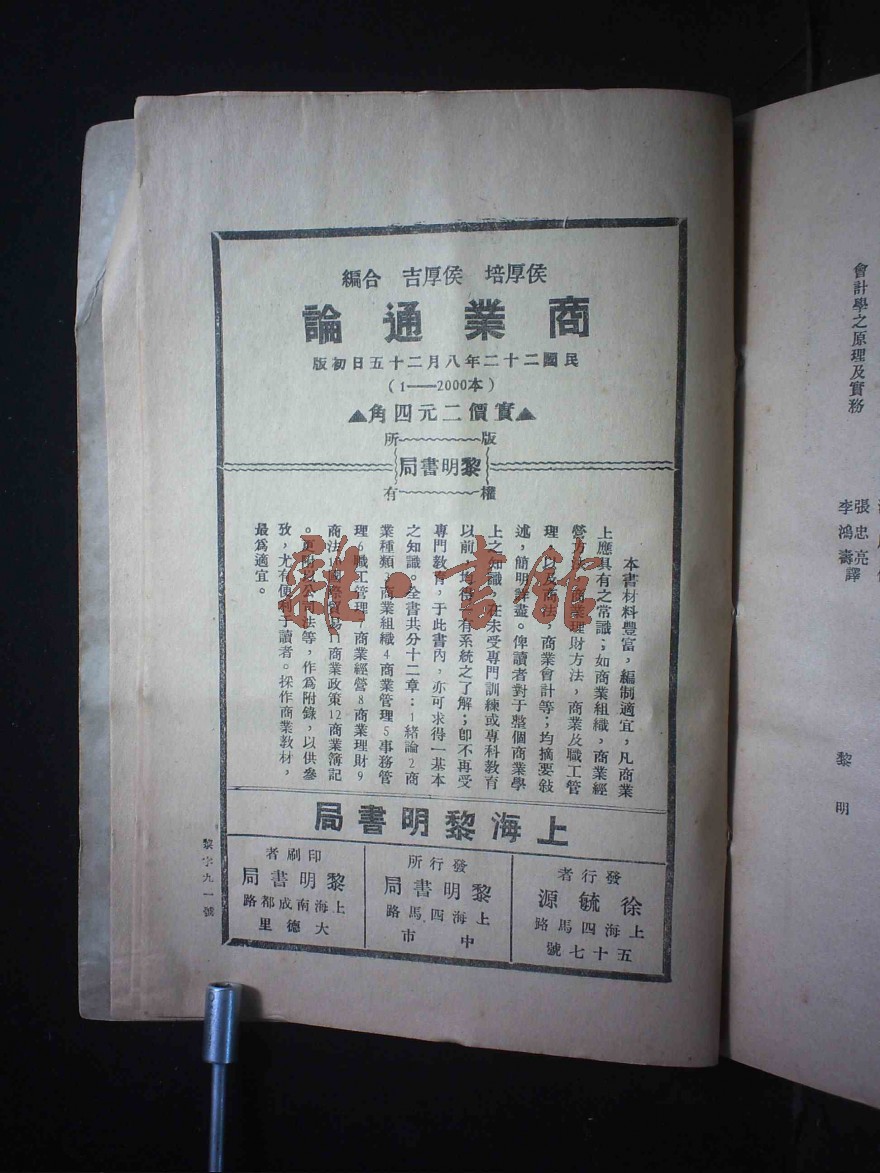 侯厚培 侯厚吉 合編
商業通論
民國二十二年八月二十五日初版
(1——2000本)
▲實價二元四角▲
版所
黎明書局
權有
本書材料豐富，編制適宜，凡商業
上應具有之常識；如商業組織，商業經
營方法，商業理財方法，商業及職工管
理，以及商法，商業會計等；均摘要敍
述，簡明詳盡。俾讀者對于整個商業學
上之知識，在未受專門訓練或專科教育
以前，均得一有系統之了解；卽不再受
專門教育，于此書內，亦可求得一基本
之知識。全書共分十二章：1緒論2商
業種類 商業組織4商業管理5事務管
理6職工管理7商業經營8商業理財9
商法 國際貿易11商業政策12商業簿記
。更附以公司法等，作爲附錄，以供參
攷，尤有便利于讀者。採作商業教材，
最爲適宜。
上海黎明書局
發行者
徐毓源
上海四馬路
五十七號
發行所
黎明書局
上海四馬路
中市
印刷者
黎明書局
上海南成都路
大德里
黎字九一號
雜·書館
會計學之原理及實務
張忠亮
李鴻壽譯
黎明